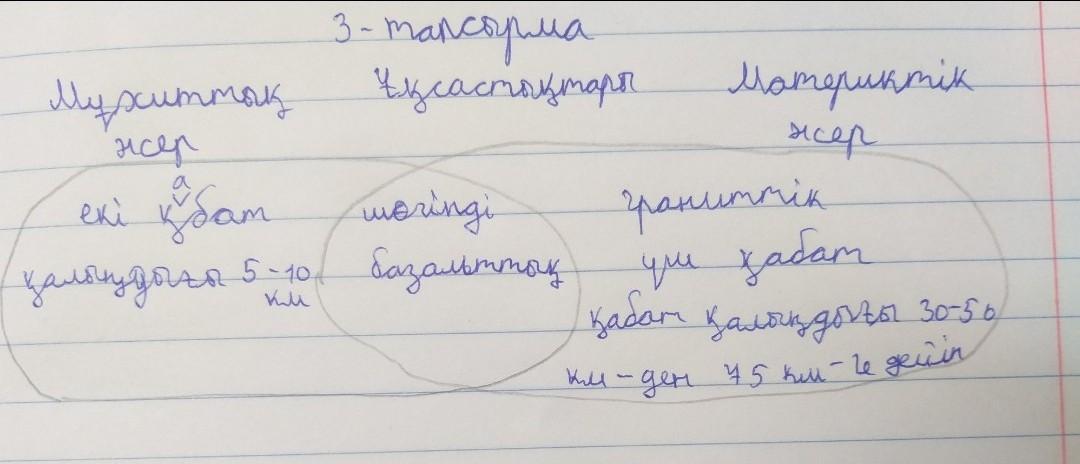 3 - тапсырма
Мұхиттық Ұқсастықтары Материктік
жер жер
екі қабат шөгінді граниттік
қалыңдығы 5-10 базальттық үш қабат
км
қабат қалыңдығы 30-50
км-ден 75 км-ге дейін